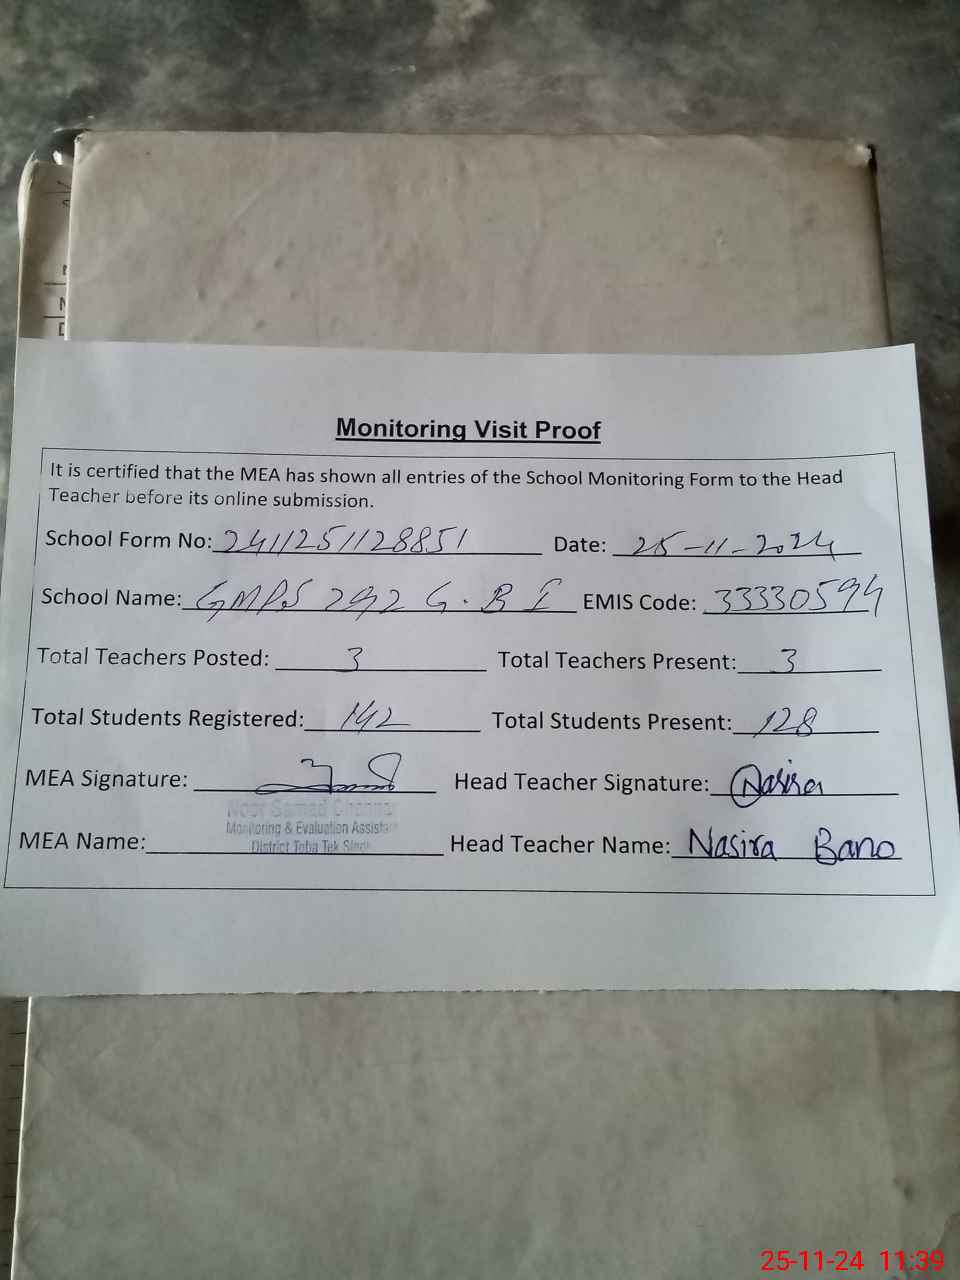 Monitoring Visit Proof
It is certified that the MEA has shown all entries of the School Monitoring Form to the Head
Teacher before its online submission.
School Form No: 2411251128851 Date: 25-11-2024
School Name: GMPS 292 G.B I EMIS Code: 33330594
Total Teachers Posted: 3 Total Teachers Present: 3
Total Students Registered: 142 Total Students Present: 128
MEA Signature: Head Teacher Signature: Nasira
Monitoring & Evaluation Assistant
MEA Name: District Toba Tek Singh Head Teacher Name: Nasira Bano
25-11-24 11:39